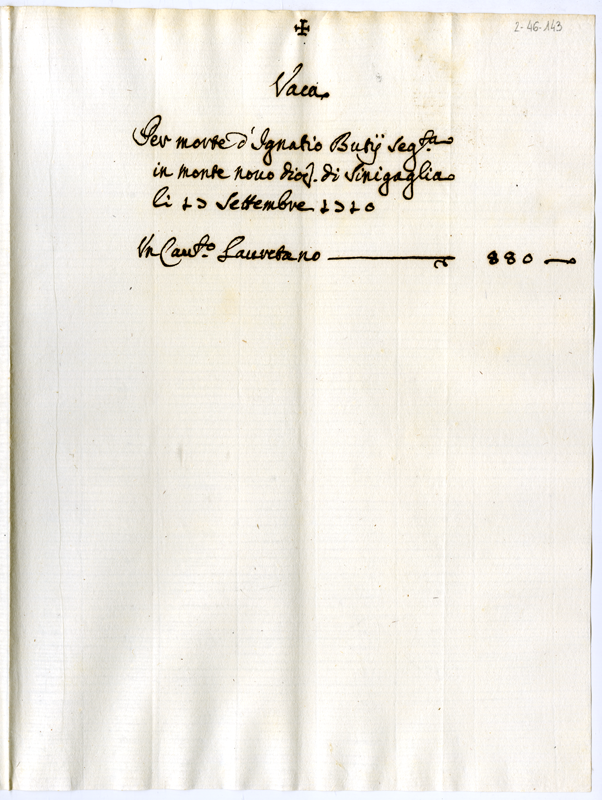 ✠
2-46-143
Vaca
Per morte d'Ignatio Butij seg.ta
in monte novo dioc. di Sinigaglia
li 13 Settembre 1710
Un Cau.to Lauretano 880